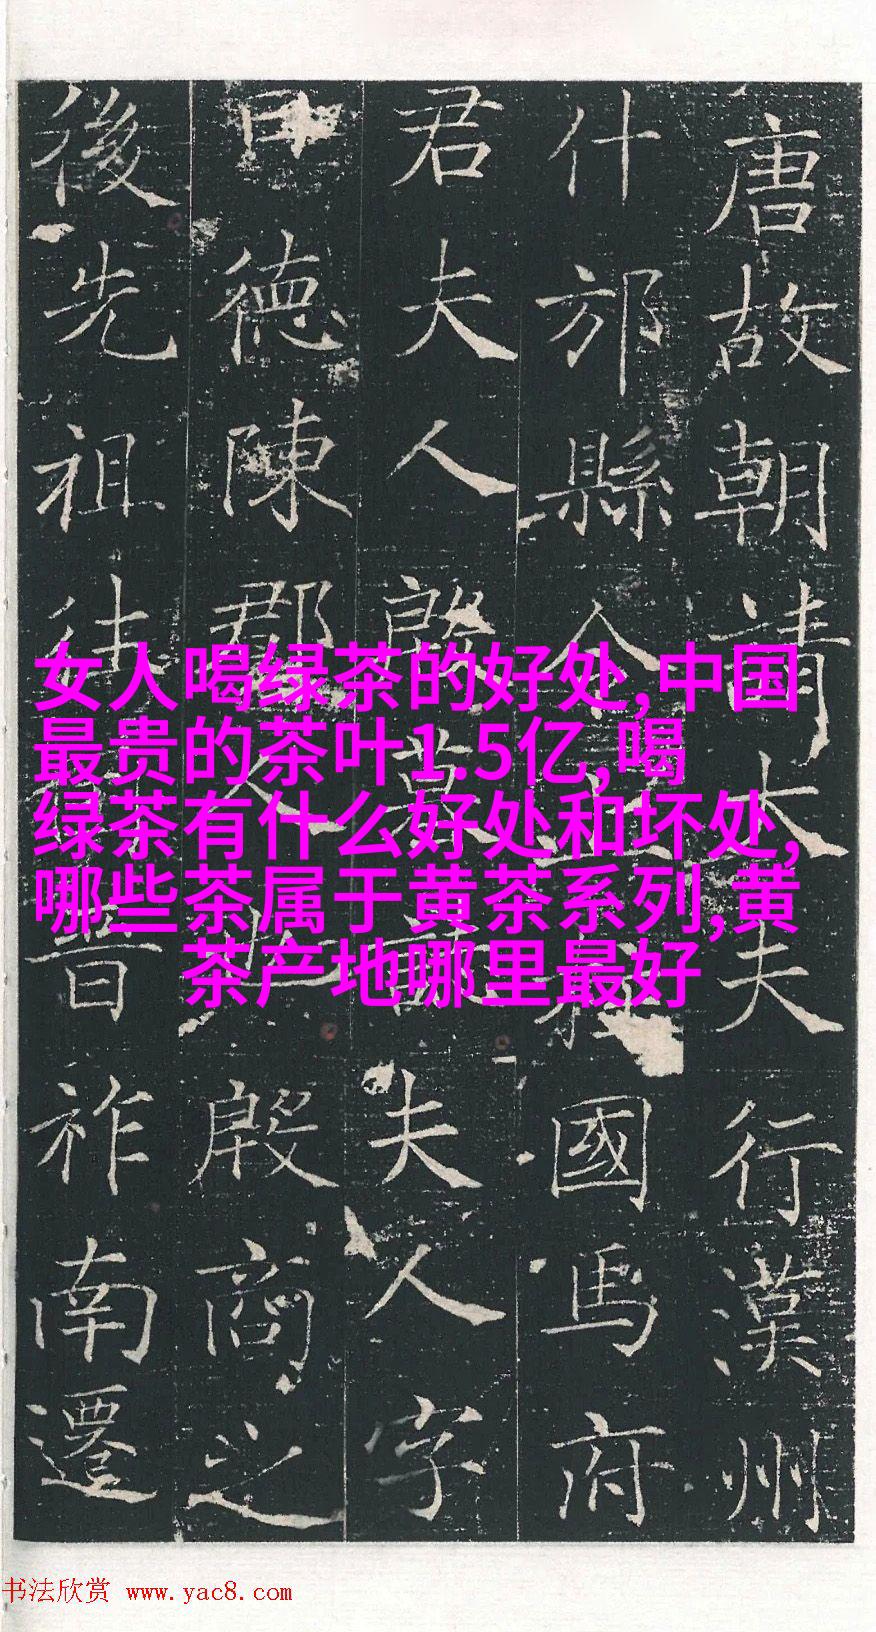 唐故朝請大夫行漢州
什邡縣令國馬府
君夫人夫人字
曰德陳郡人也殷商之
後先祖往晉祚南遷
女人喝绿茶的好处,中国
最贵的茶叶1.5亿,喝
绿茶有什么好处和坏处,
哪些茶属于黄茶系列,黄
茶产地哪里最好
书法欣赏 www.yac8.com